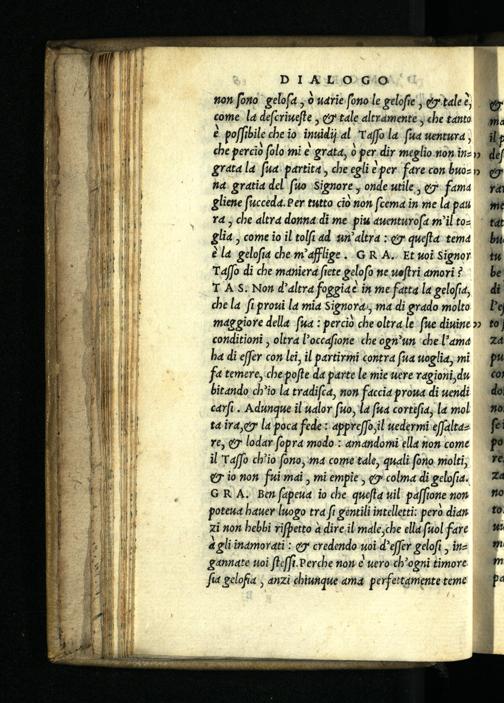 DIALOGO
non sono gelosa, ò uarie sono le gelosie, & tale è,
come la descriueste, & tale altramente, che tanto
è possibile che io inuidij al Tasso la sua uentura,
che perciò solo mi è grata, ò per dir meglio non in=
grata la sua partita, che egli è per fare con buo=
na gratia del suo Signore, onde utile, & fama
gliene succeda. Per tutto ciò non scema in me la pau
ra, che altra donna di me piu auenturosa m'il to=
glia, come io il tolsi ad un'altra: & questa tema
è la gelosia che m'afflige. GRA. Et uoi Signor
Tasso di che maniera siete geloso ne uostri amori?
TAS. Non d'altra foggia è in me fatta la gelosia,
che la si proui la mia Signora, ma di grado molto
maggiore della sua: perciò che oltra le sue diuine
conditioni, oltra l'occasione che ogn'un che l'ama
ha di esser con lei, il partirmi contra sua uoglia, mi
fa temere, che poste da parte le mie uere ragioni, du
bitando ch'io la tradisca, non faccia proua di uendi
carsi. Adunque il ualor suo, la sua cortesia, la mol
ta ira, & la poca fede: appresso, il uedermi essalta=
re, & lodar sopra modo: amandomi ella non come
il Tasso ch'io sono, ma come tale, quali sono molti,
& io non fui mai, mi empie, & colma di gelosia.
GRA. Ben sapeua io che questa uil passione non
poteua hauer luogo tra si gentili intelletti: però dian
zi non hebbi rispetto à dire il male, che ella suol fare
à gli inamorati: & credendo uoi d'esser gelosi, in=
gannate uoi stessi. Perche non è uero ch'ogni timore
sia gelosia, anzi chiunque ama perfettamente teme